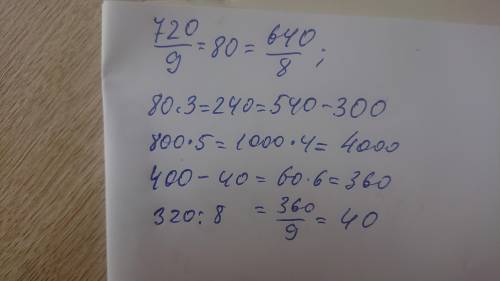 720/9 = 80 = 640/8 ;
80·3 = 240 = 540 - 300
800·5 = 1000·4 = 4000
400 - 40 = 60·6 = 360
320 : 8 = 360/9 = 40